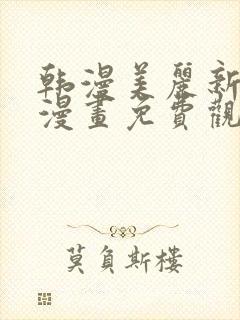 韩漫美麗新
漫畫免費觀
莫負斯樓